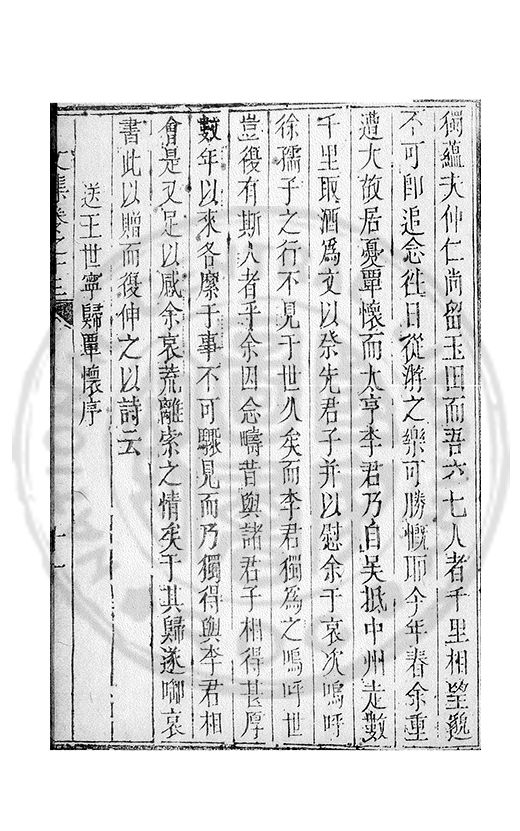 獨蘊夫仲仁尚留玉田而吾六七人者千里相望邈
不可即追念徃日從游之樂可勝慨耶今年春余重
遭大故居憂覃懷而太亨李君乃自吳抵中州走數
千里取酒為文以祭先君子并以慰余于哀次嗚呼
徐孺子之行不見于世久矣而李君獨為之嗚呼世
豈復有斯人者乎余因念疇昔與諸君子相得甚厚
數年以來各縻于事不可驟見而乃獨得與李君相
會是又足以感余哀荒離索之情矣于其歸遂啣哀
書此以贈而復伸之以詩云
送王世寧歸覃懷序
文集卷之十三
十一